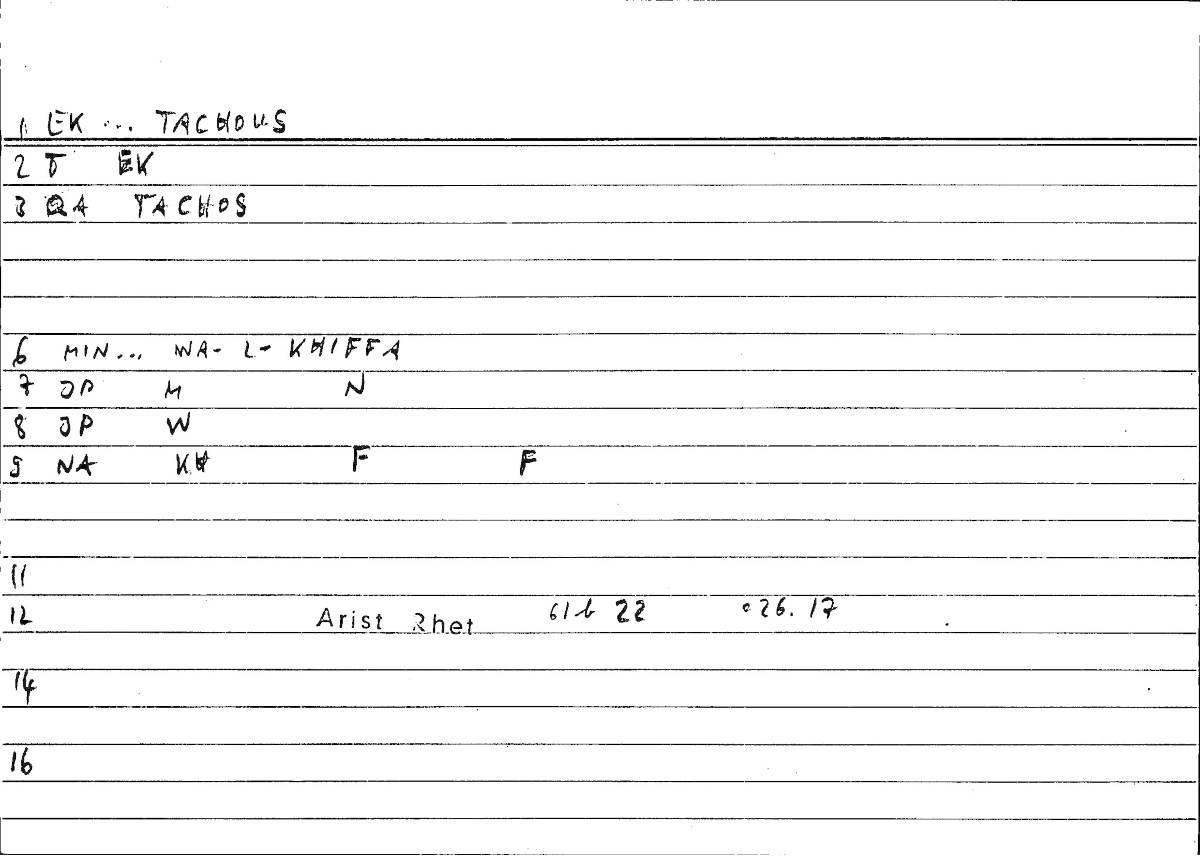 1 EK ... TACHOUS
2 T EK
3 QA TACHOS
6 MIN... WA- L- KHIFFA
7 JP M N
8 JP W
9 NA KH F F
11
12 Arist Rhet 61b 22 26.17
14
16